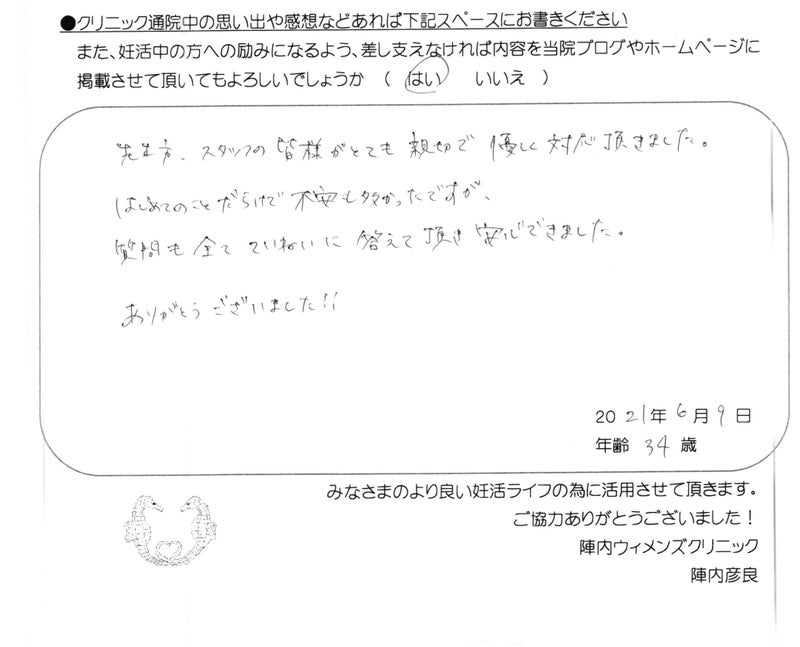 ●クリニック通院中の思い出や感想などあれば下記スペースにお書きください
また、妊活中の方への励みになるよう、差し支えなければ内容を当院ブログやホームページに
掲載させて頂いてもよろしいでしょうか （ はい いいえ ）
先生方、スタッフの皆様がとても親切で優しく対応頂きました。
はじめてのことだらけで不安も多かったですが、
質問も全てていねいに答えて頂き安心できました。
ありがとうございました!!
2021年6月9日
年齢 34 歳
みなさまのより良い妊活ライフの為に活用させて頂きます。
ご協力ありがとうございました！
陣内ウィメンズクリニック
陣内彦良